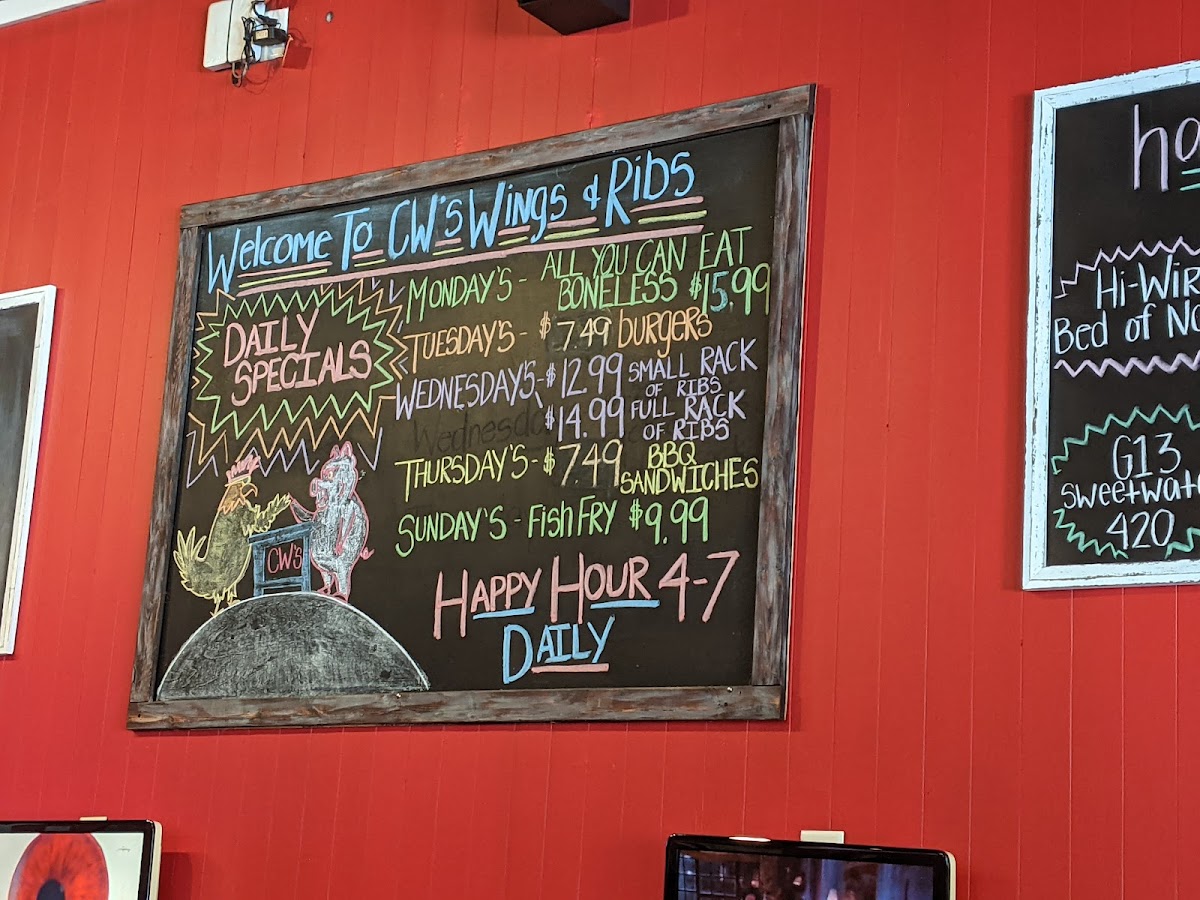 Welcome To CW's Wings & Ribs
DAILY
SPECIALS
MONDAY'S - ALL YOU CAN EAT
BONELESS $15.99
TUESDAY'S - $7.49 BURGERS
WEDNESDAY'S - $12.99 SMALL RACK
OF RIBS
$14.99 FULL RACK
OF RIBS
Wednesday
THURSDAY'S - $7.49 BBQ
SANDWICHES
SUNDAY'S - FISH FRY $9.99
CW's
HAPPY HOUR 4-7
DAILY
Bed of
G13
420